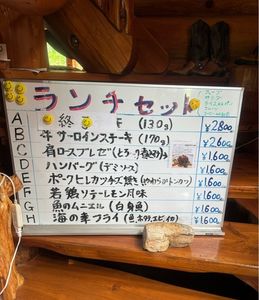 ランチセット
A 終 F (130g) ¥2800
B 牛サーロインステーキ (170g) ¥2600
C 肩ロースブレゼ ¥1600
D ハンバーグ (デミソース) ¥1600
E ポークヒレカツチーズ焼き (やわらかトンカツ) ¥1600
F 若鶏ソテーレモン風味 ¥1600
G 魚のムニエル (白身魚) ¥1600
H 海の幸フライ (魚、ホタテ、エビ、イカ) ¥1600